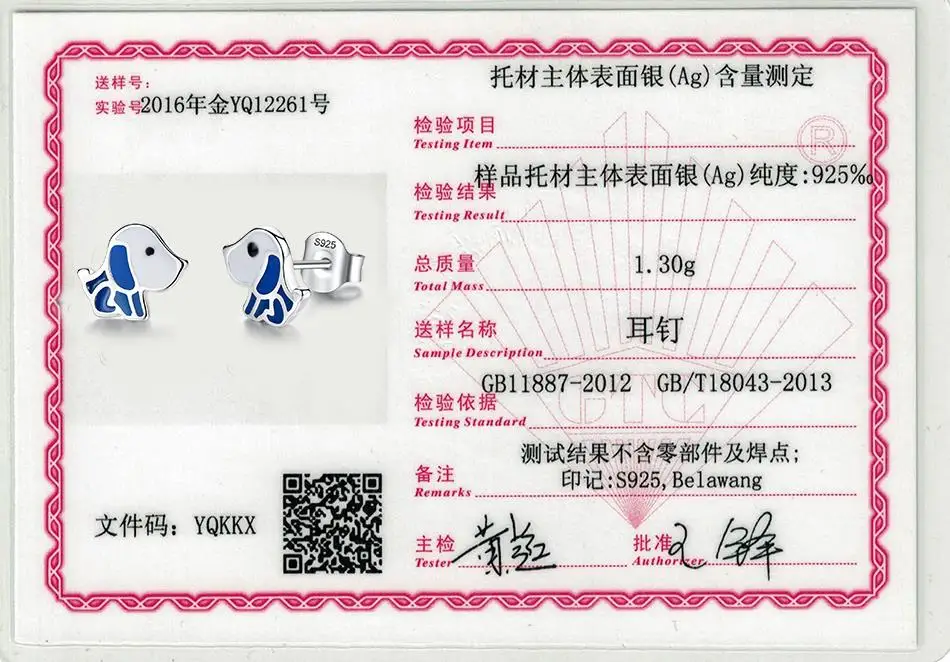 送样号：
实验号2016年金YQ12261号
S925
文件码：YQKKX
托材主体表面银(Ag)含量测定
检验项目
Testing Item
®
样品托材主体表面银(Ag)纯度:925‰
检验结果
Testing Result
总质量
1.30g
Total Mass
送样名称
耳钉
Sample Description
GB11887-2012 GB/T18043-2013
检验依据
Testing Standard
GTC
测试结果不含零部件及焊点;
备注
印记:S925,Belawang
Remarks
主检
Tester
批准
Authorizer